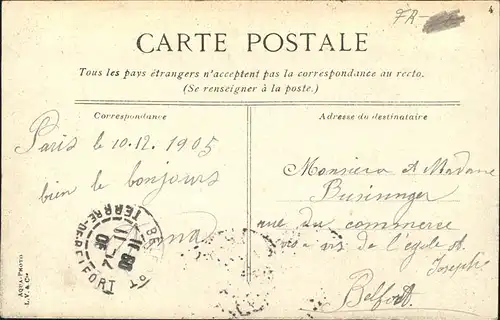 FR-
4
CARTE POSTALE
Tous les pays étrangers n'acceptent pas la correspondance au recto.
(Se renseigner à la poste.)
Correspondance
Adresse du destinataire
Paris le 10.12. 1905
bien le bonjours
Monsieur et Madame
Businnger
rue du commerce
vis a vis de l'égole St.
Joseph
Belfort.
TERRE-DE-BELFORT
AQUA-PHOTO
L. V. & Cie